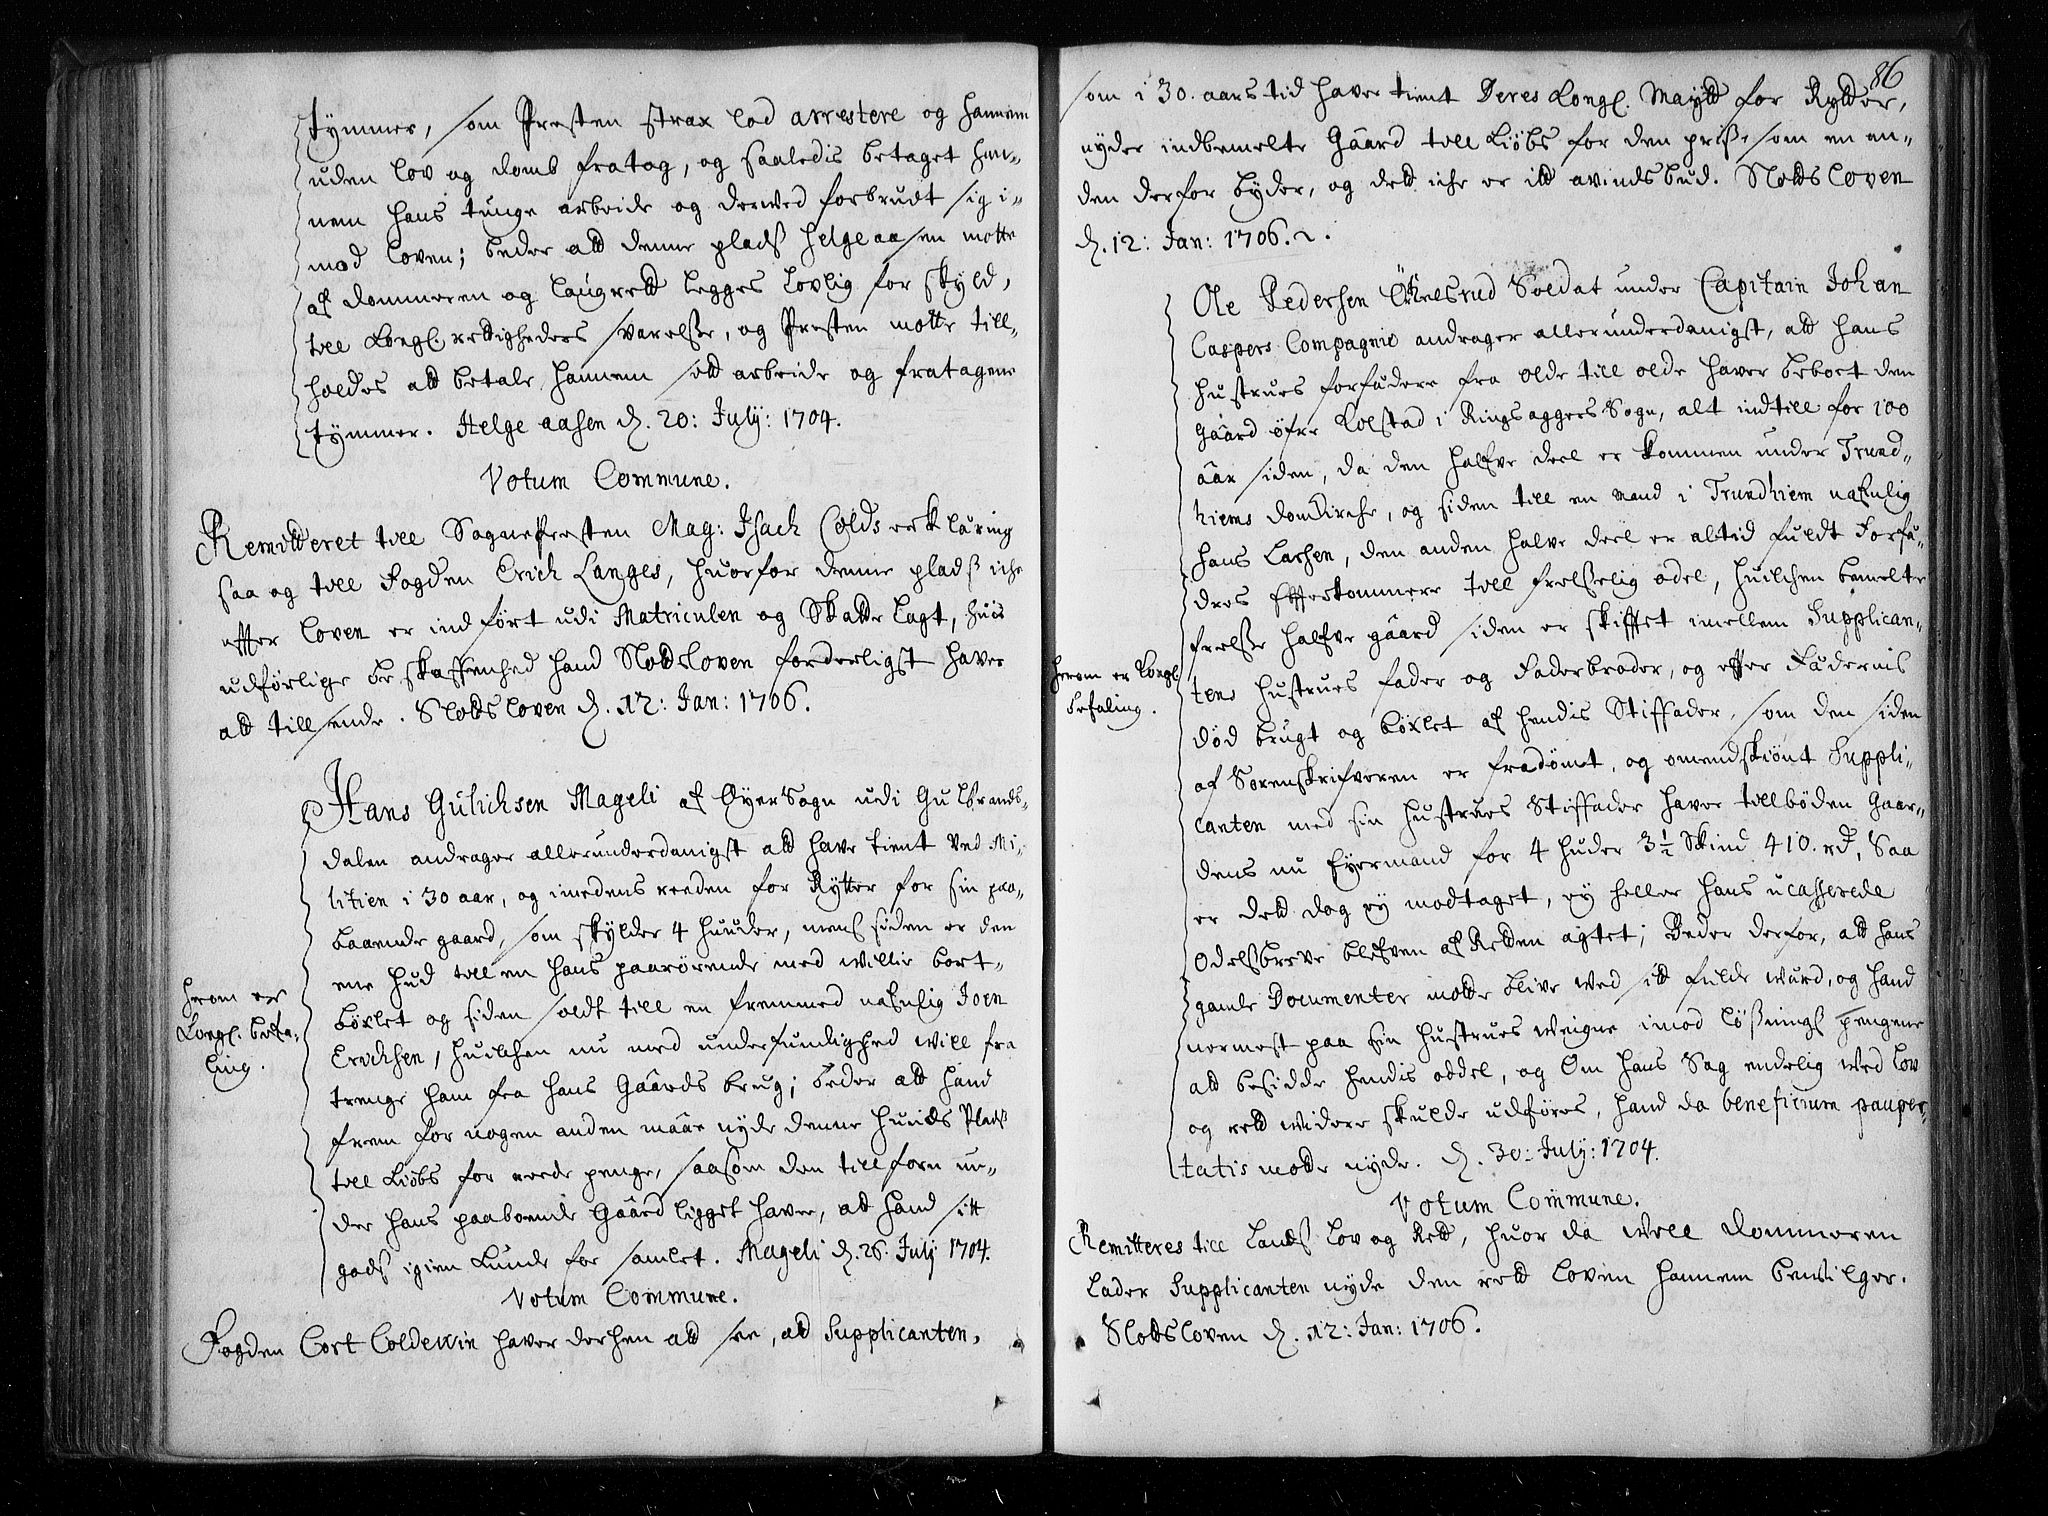 tÿmmer, som Præsten strax lod arrestere og hannem
uden lov og domb fratog, og saaledis betaget han-
nem hans tunge arbeide og derved forbrudt sig i-
mod loven; beder att denne plads Helgeaasen motte
af dommeren og laugrett legges lovlig for skyld,
till Kongl. rettigheders svarelsse, og Præsten motte till-
holdes att betale hannem sitt arbeide og fratagene
tÿmmer. Helge aasen d. 20: Julÿ: 1704.
Votum Commune.
Remitteret till Sognepresten Mag: Isach Colds erklæring
saa og till Fogden Erich Langes, huorfor denne plads iche
effter loven er indført udi Matriculen og Skatte lagt, huis
udførlige beskaffenhed hand Slotsloven forderligst haver
att tillsende. Slotsloven d. 12: Jan: 1706.
Hans Gulichsen Mageli af Øyer Sogn udi Gulbrands-
dalen andrager allerunderdanigst att have tient ved Mi-
litien i 30 aar, og imedens reeden for Rÿtter for sin paa-
boende gaard, som skÿlder 4 huuder, mens siden er den
ene hud till en hans paarørende med willie bort-
bøxlet og siden soldt till en fremmed nafnlig Joen
Erichsen, huilchen nu med underfundighed will fra
trenge ham fra hans Gaards brug; beder att hand
frem for nogen anden maa nyde denne huuds Plads
till kiøbs for reede penge, saasom den tillforn un-
der hans paaboende Gaard ligget haver, att hand sitt
gods igien kunde for samlet. Mageli d. 26. Julÿ 1704.
herom er
Kongl. befa-
ling.
Votum Commune.
Fogden Cort Coldewin haver derhen att see, att Supplicanten,
86
som i 30. aars tid haver tient Deres Kongl. Maÿtt for Rytter,
nyder indbemelte Gaard till kiøbs for den prisse som en an-
den derfor byder, og dett iche er itt avindsbud. Slotsloven
d. 12: Jan: 1706.
Ole Pedersen Økelsrud Soldat under Capitain Johan
Caspers Compagnie andrager allerunderdanigst, att hans
hustrues forfædere fra olde till olde haver beboet den
gaard øfre Kolstad i Ringsaggers Sogn, alt indtill for 100
aar siden, da den halfve deel er kommen under Trund-
hiems domkirche, og siden till en mand i Trundhiem nafnlig
Hans Larsen, den anden halve deel er altid fuldt Forfæ-
dres Effterkommere till frelsselig odel, huilchen bemelte
frelsse halfve gaard siden er skifftet imellem Supplican-
tens hustrues fader og Faderbroder, og effter Fædernis
død brugt og bøxlet af hendis Stiffader, som den siden
af Sorenskrifveren er fradømt, og omendskiønt Suppli-
canten med sin hustrues Stiffader haver tillbøden Gaar-
dens nu Eyermand for 4 huder 3½ Skind 410. rd, Saa
er dett dog ey modtaget, ey heller hans ucasserede
Odelsbreve blefven af Retten agtet; Beder derfor, att hans
gamle Documenter motte blive ved sitt fulde wærd, og hand
nermest paa sin hustrues weigne imod løsnings pengene
att besidde hendis oddel, og Om hans Sag endelig ved lov
og rett widere skulde udføres, hand da beneficium pauper-
tatis motte nyde. d. 30: Julÿ: 1704.
herom er Kongl
befaling.
Votum Commune.
Remitteres till Lands Lov og Rett, huor da well dommeren
lader Supplicanten nyde den rett loven hannem bevilger.
Slotsloven d. 12: Jan: 1706.